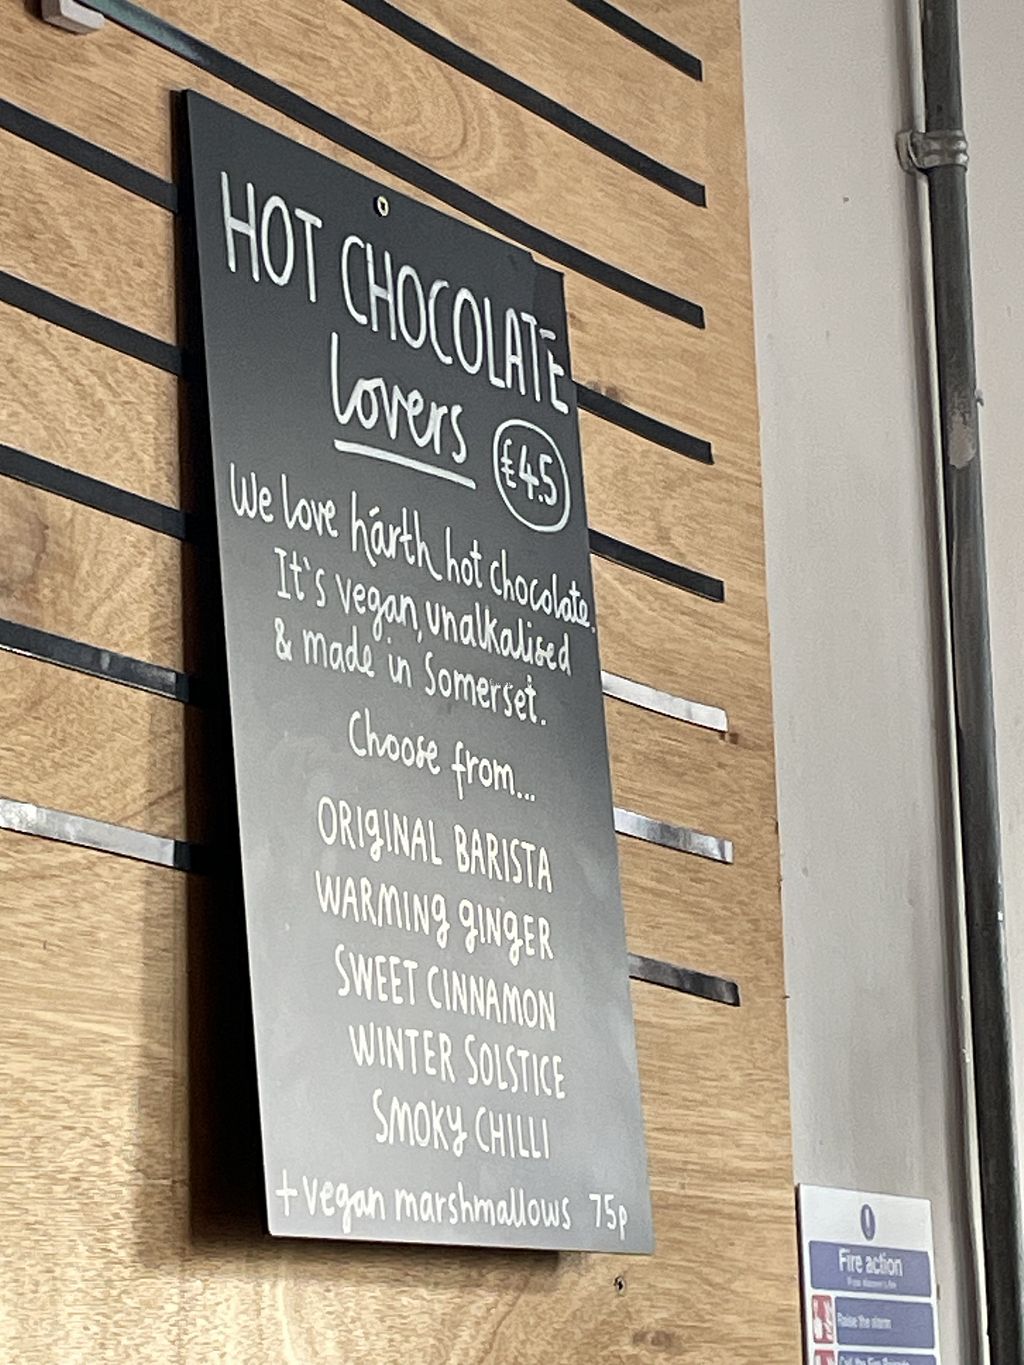 HOT CHOCOLATE
lovers
£4.5
We love hárth hot chocolate.
It's vegan, unalkalised
& made in Somerset.
Choose from...
ORIGINAL BARISTA
WARMING GINGER
SWEET CINNAMON
WINTER SOLSTICE
SMOKY CHILLI
+ vegan marshmallows 75p
Fire action
Raise the alarm